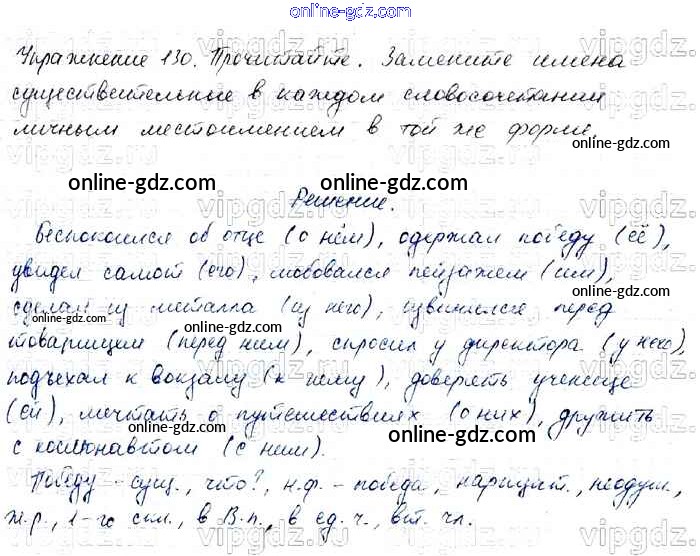 online-gdz.com
Упражнение 130. Прочитайте. Замените имена
существительные в каждом словосочетании
личным местоимением в той же форме.
online-gdz.com online-gdz.com
Решение.
Беспокоился об отце (о нём), одержал победу (её),
online-gdz.com
увидел самолёт (его), любовался пейзажем (им),
сделал из металла (из него), извинился перед
online-gdz.com online-gdz.com
товарищем (перед ним), спросил у директора (у него),
online-gdz.com
подъехал к вокзалу (к нему), доверять ученице
(ей), мечтать о путешествиях (о них), дружить
online-gdz.com
с космонавтом (с ним).
online-gdz.com
Победу - сущ., что?, н.ф. - победа, нарицат., неодуш.,
ж.р., 1-го скл., в В.п., в ед.ч., вт. чл.